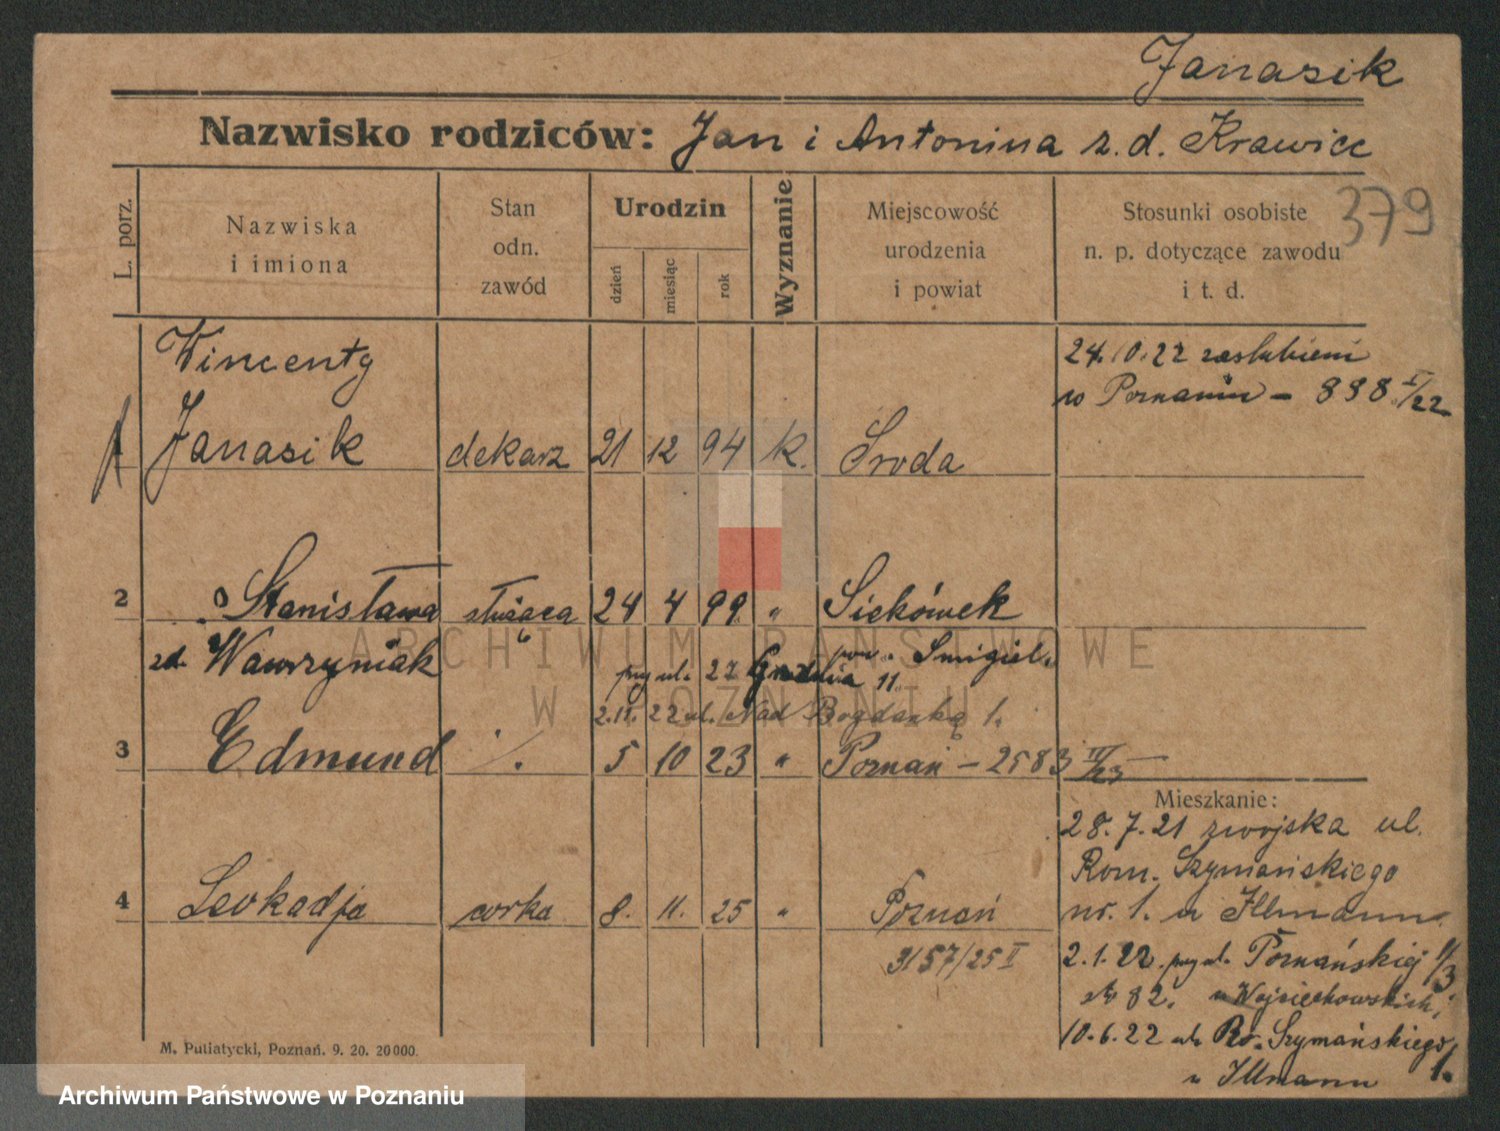 Janasik
Nazwisko rodziców: Jan i Antonina z. d. Krawiec
379
L. porz.
Nazwiska
i imiona
Stan
odn.
zawód
Urodzin
dzień
miesiąc
rok
Wyznanie
Miejscowość
urodzenia
i powiat
Stosunki osobiste
n. p. dotyczące zawodu
i t. d.
24.10.22 zaslubieni
w Poznaniu – 898 I/22
Wincenty
1 Janasik dekarz 21 12 94 k. Środa
2 Stanisława służąca 24 4 99 " Siekówek
zd. Wawrzyniak pow. Smigiel
przy ul. 27 Grudnia 11.
2.11.22 ul. Nad Bogdanką 1.
3 Edmund ./. 5 10 23 " Poznań – 2583 III/23
4 Leokadja córka 8. 11. 25 " Poznań
3157/25 II
Mieszkanie:
28.7.21 z wojska ul.
Rom. Szymańskiego
nr. 1. u Illmann
2.1.22 przy ul. Poznańskiej
82. u Wojciechowskich,
10.6.22 ul. Ro. Szymańskiego 1.
u Illmann
M. Puliatycki, Poznań. 9. 20. 20000.
ARCHIWUM PAŃSTWOWE
W POZNANIU
Archiwum Państwowe w Poznaniu